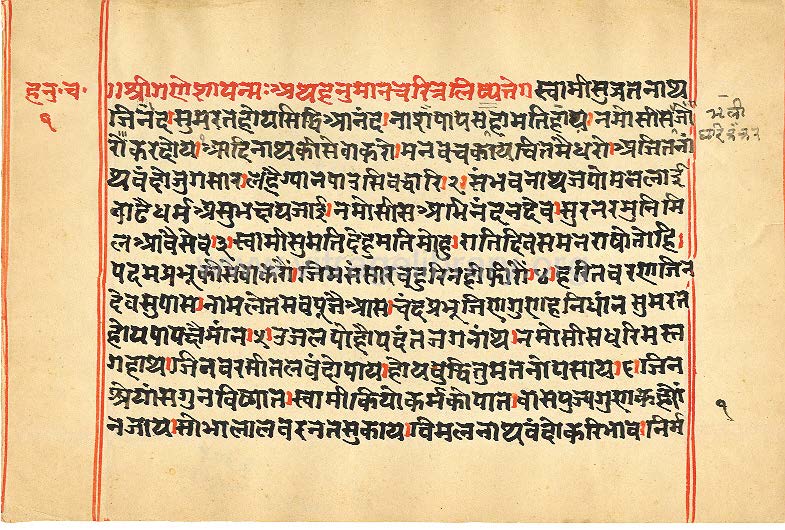 हनु॰च॰
१
॥श्रीगणेशायन्मः॥अथहनुमानचरित्रलिष्यते॥स्वामीसुव्रतनाथ
जिनंद।सुमरतहोयसिद्धिआनंद।नाशेपापसहोमतिहोय।नमोसीसजो
रोकरदोय।आदिनाथकीसेवाकरो।मनवचकायचितमैधरो।अजितनां
थवंदोजुगसार।लहैग्यानपावसिवद्वारि।२।संभवनाथजपोमनलाई
बाढैधर्मअसुभक्षयजाई।नमोसीसअभिनंदनदेव।सुरनरमुनिमि
लआवैसेव।३।स्वामीसुमतिदेहमतिमोहु।रातिदिवसमनराषोतोहि।
पदमप्रभूकीसेवाकरो।४।हरितवरणजिन
देवसुपास।नामलेतसवपूजैआस।चंद्रप्रभूजिणगुणहनिधांन।सुमरत
होयपापक्षैमांन।५।उजलपोहौपदंतजगनांथ।नमोसीसधरिमस्त
गहाथ।जिनवरसीतलवंदोपाय।होयबुद्धितुमतनोपसाय।६।जिन
श्रेयांसगुनविष्यात।स्वामीकियोकर्मकोघात।वासपुज्यगुणकह्यौ
नजाय।सोभालालवरनतसुकाय।विमलनाथवंदोकरिभाव।निर्म
१